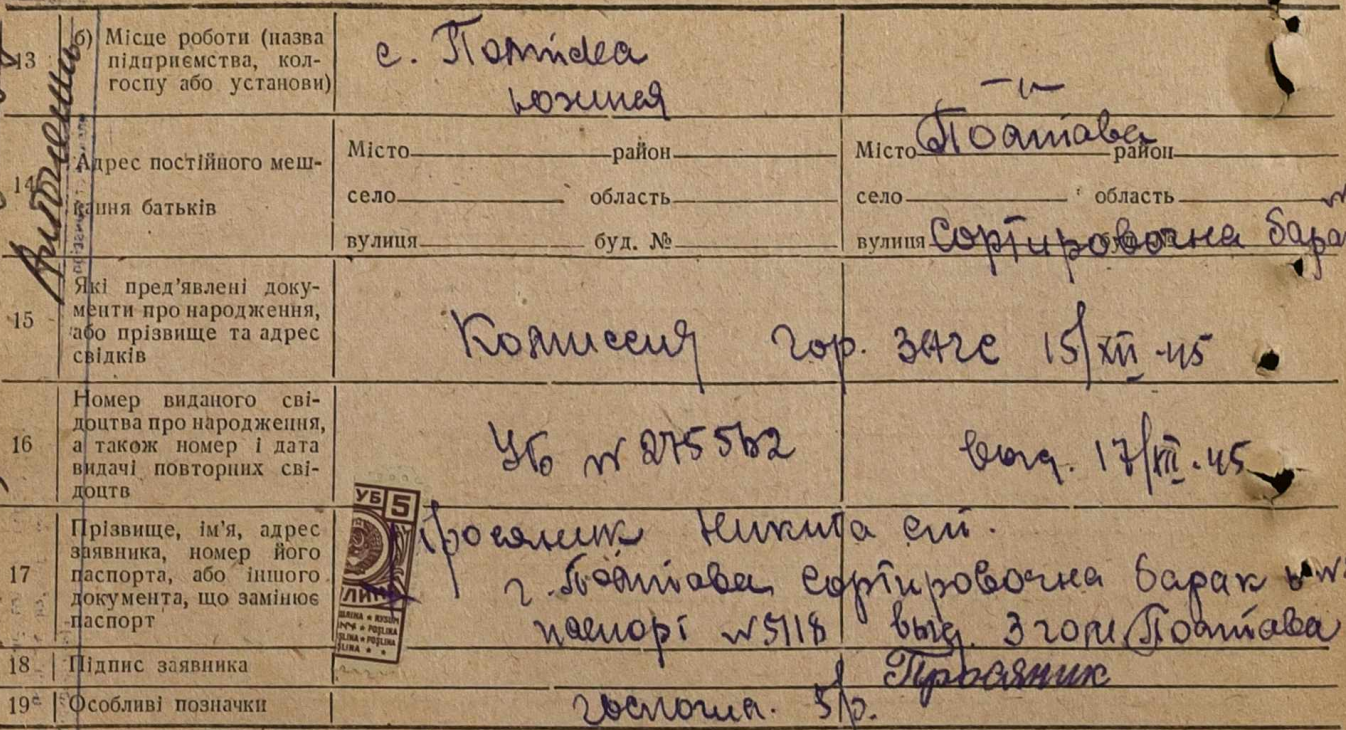 13 б) Місце роботи (назва
підприємства, кол-
госпу або установи)
с. Полтава
южная
-"-
14 Адрес постійного меш-
кання батьків
Місто район
село область
вулиця буд. №
Місто Полтава район
село область
вулиця Сортировочна бара
15 Які пред'явлені доку-
менти про народження,
або прізвище та адрес
свідків
Комиссия гор. ЗАГС 15/XII-45
16 Номер виданого сві-
доцтва про народження,
а також номер і дата
видачі повторних сві-
доцтв
УБ № 275562 выд. 17/XII-45
17 Прізвище, ім'я, адрес
заявника, номер його
паспорта, або іншого
документа, що замінює
паспорт
УБ 5
Просяник Никита
г. Полтава Сортировочна барак
паспорт №5118 выд. 3 гом Полтава
18 Підпис заявника
Просяник
19 Особливі позначки
госпошл. 5/р.